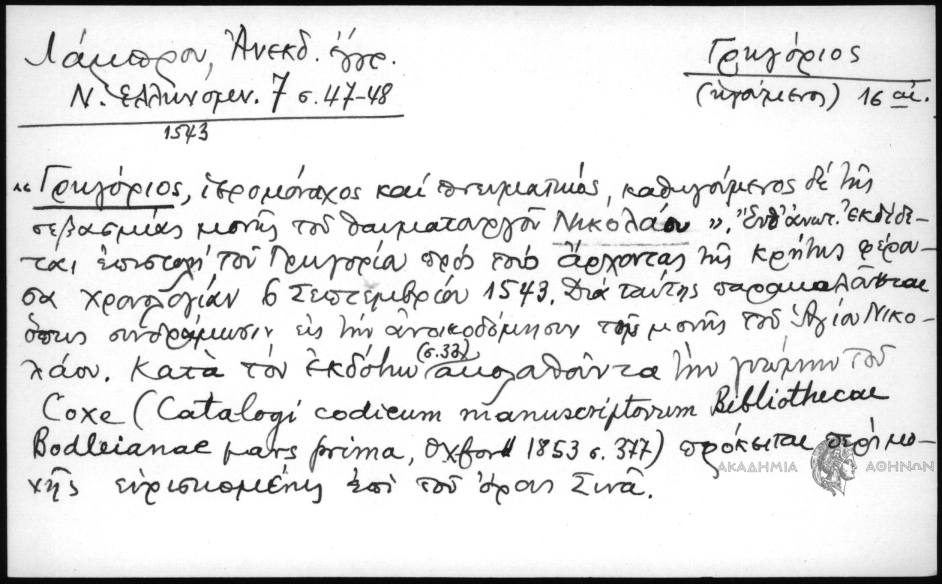 Λάμπρου, Ἀνεκδ. ἔγγρ.
Ν. Ἑλληνομν. 7 σ. 47-48
1543
Γρηγόριος
(ἡγούμενος) 16 αἰ.
"Γρηγόριος, ἱερομόναχος καί πνευματικός, καθηγούμενος δέ τῆς
σεβασμίας μονῆς τοῦ θαυματουργοῦ Νικολάου". Ἔνθ' ἀνωτ. Ἐκδίδε-
ται ἐπιστολή τοῦ Γρηγορίου πρός τούς ἄρχοντας τῆς Κρήτης φέρου-
σα χρονολογίαν 6 Σεπτεμβρίου 1543. Διά ταύτης παρακαλοῦνται
ὅπως συνδράμωσιν εἰς τήν ἀνοικοδόμησιν τῆς μονῆς τοῦ Ἁγίου Νικο-
λάου. Κατὰ τόν ἐκδότην (σ.33) ἀκολουθοῦντα τήν γνώμην τοῦ
Coxe (Catalogi codicum manuscriptorum Bibliothecae
Bodleianae pars prima, Oxford 1853 σ. 377) πρόκειται περί μο-
νῆς εὑρισκομένης ἐπί τοῦ ὄρους Σινᾶ.
ΑΚΑΔΗΜΙΑ ΑΘΗΝΩΝ